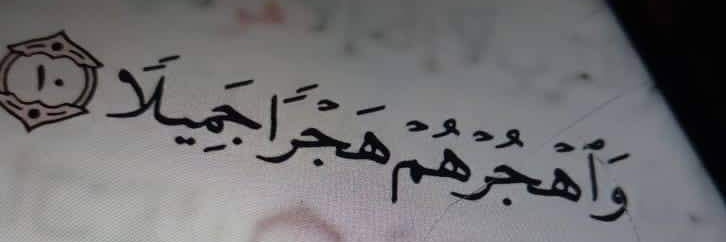 وَٱهْجُرْهُمْ هَجْرًا جَمِيلًا ١٠